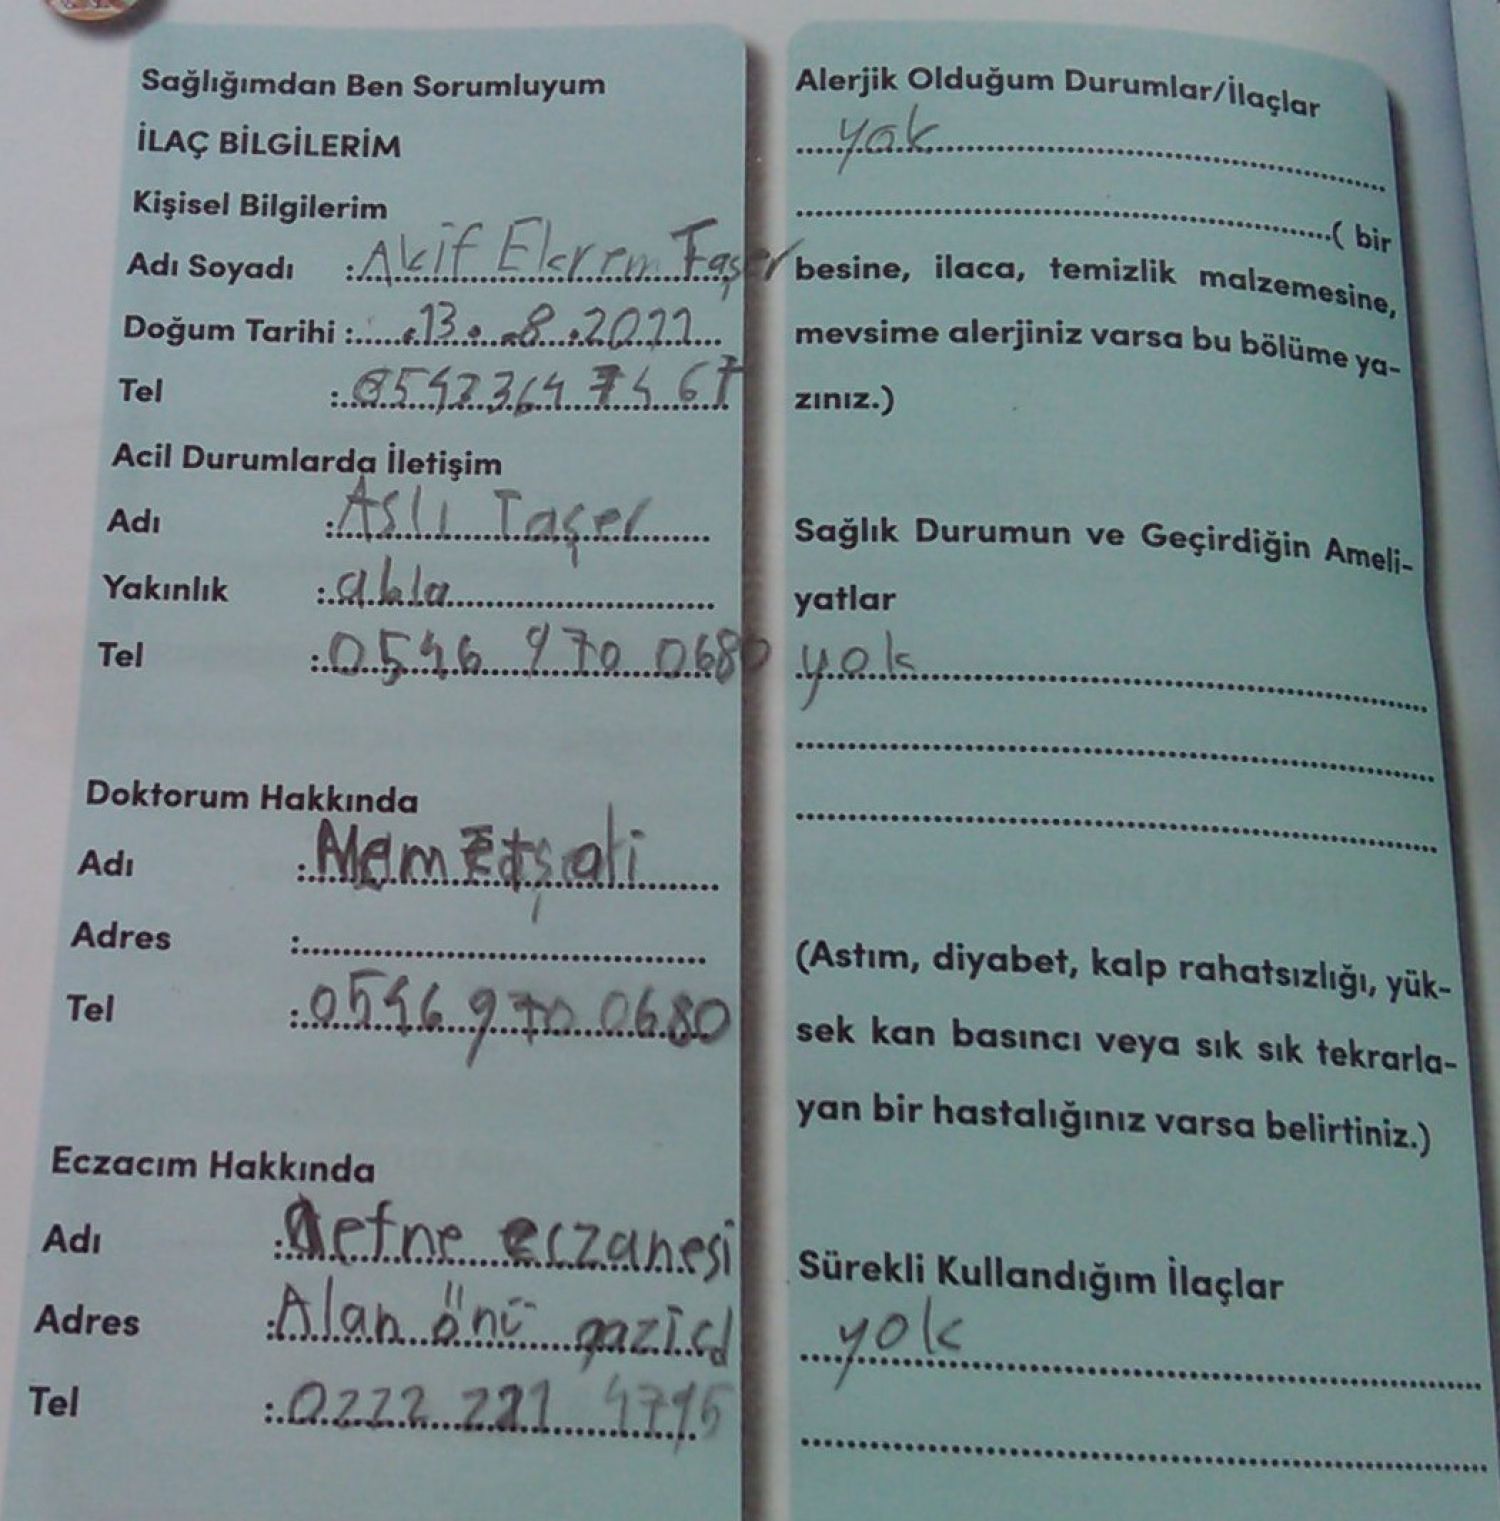 Sağlığımdan Ben Sorumluyum
İLAÇ BİLGİLERİM
Kişisel Bilgilerim
Adı Soyadı : Akif Ekrem Taşer
Doğum Tarihi : 13. 8. 2011
Tel : 0542364
Acil Durumlarda İletişim
Adı : Aslı Taşer
Yakınlık : abla
Tel : 0546 970 0680
Doktorum Hakkında
Adı :
Adres :
Tel : 0546 970 0680
Eczacım Hakkında
Adı : defne eczanesi
Adres : Alan önü gazi cd
Tel : 0222 221 4715
Alerjik Olduğum Durumlar/İlaçlar
yok
( bir
besine, ilaca, temizlik malzemesine,
mevsime alerjiniz varsa bu bölüme ya-
zınız.)
Sağlık Durumun ve Geçirdiğin Ameli-
yatlar
yok
(Astım, diyabet, kalp rahatsızlığı, yük-
sek kan basıncı veya sık sık tekrarla-
yan bir hastalığınız varsa belirtiniz.)
Sürekli Kullandığım İlaçlar
yok